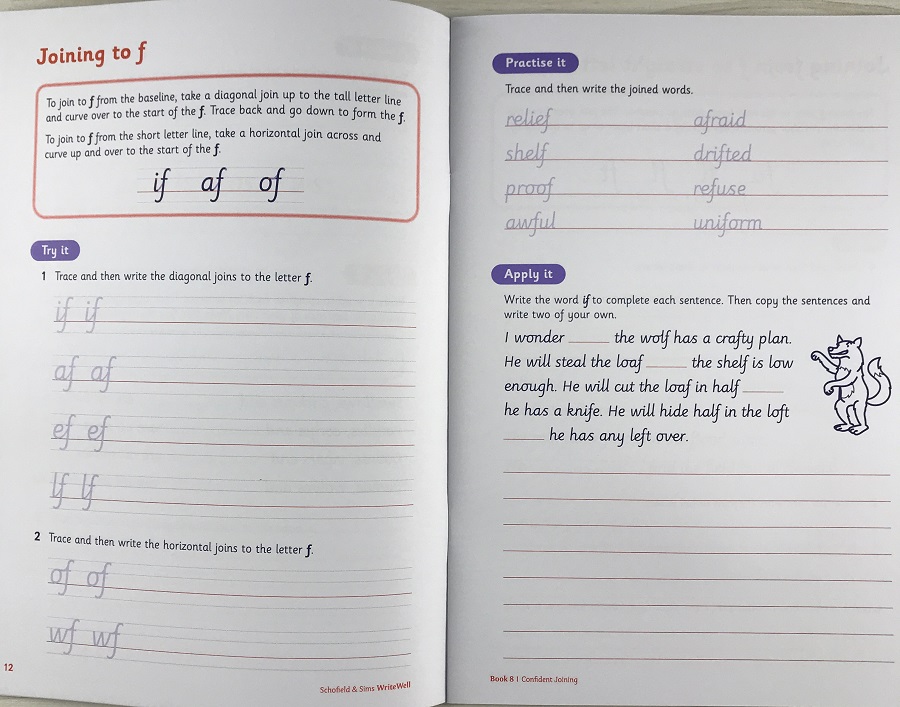 Joining to f
To join to f from the baseline, take a diagonal join up to the tall letter line
and curve over to the start of the f. Trace back and go down to form the f.
To join to f from the short letter line, take a horizontal join across and
curve up and over to the start of the f.
if af of
Try it
1 Trace and then write the diagonal joins to the letter f.
if if
af af
ef ef
lf lf
2 Trace and then write the horizontal joins to the letter f.
of of
wf wf
12
Schofield & Sims WriteWell
Practise it
Trace and then write the joined words.
relief afraid
shelf drifted
proof refuse
awful uniform
Apply it
Write the word if to complete each sentence. Then copy the sentences and
write two of your own.
I wonder _____ the wolf has a crafty plan.
He will steal the loaf _____ the shelf is low
enough. He will cut the loaf in half _____
he has a knife. He will hide half in the loft
_____ he has any left over.
Book 8 | Confident Joining